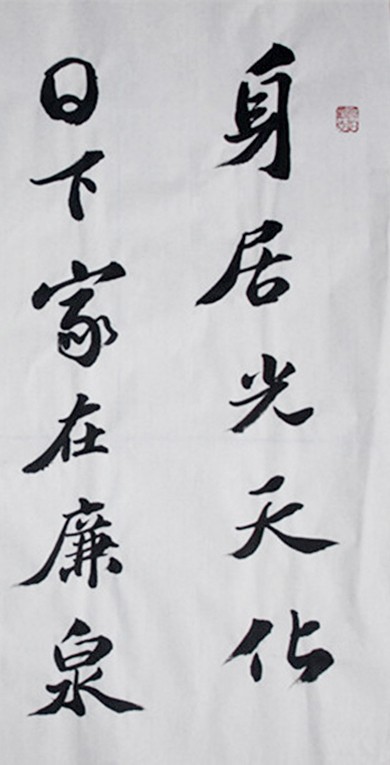 身居光天化
日下家在廉泉